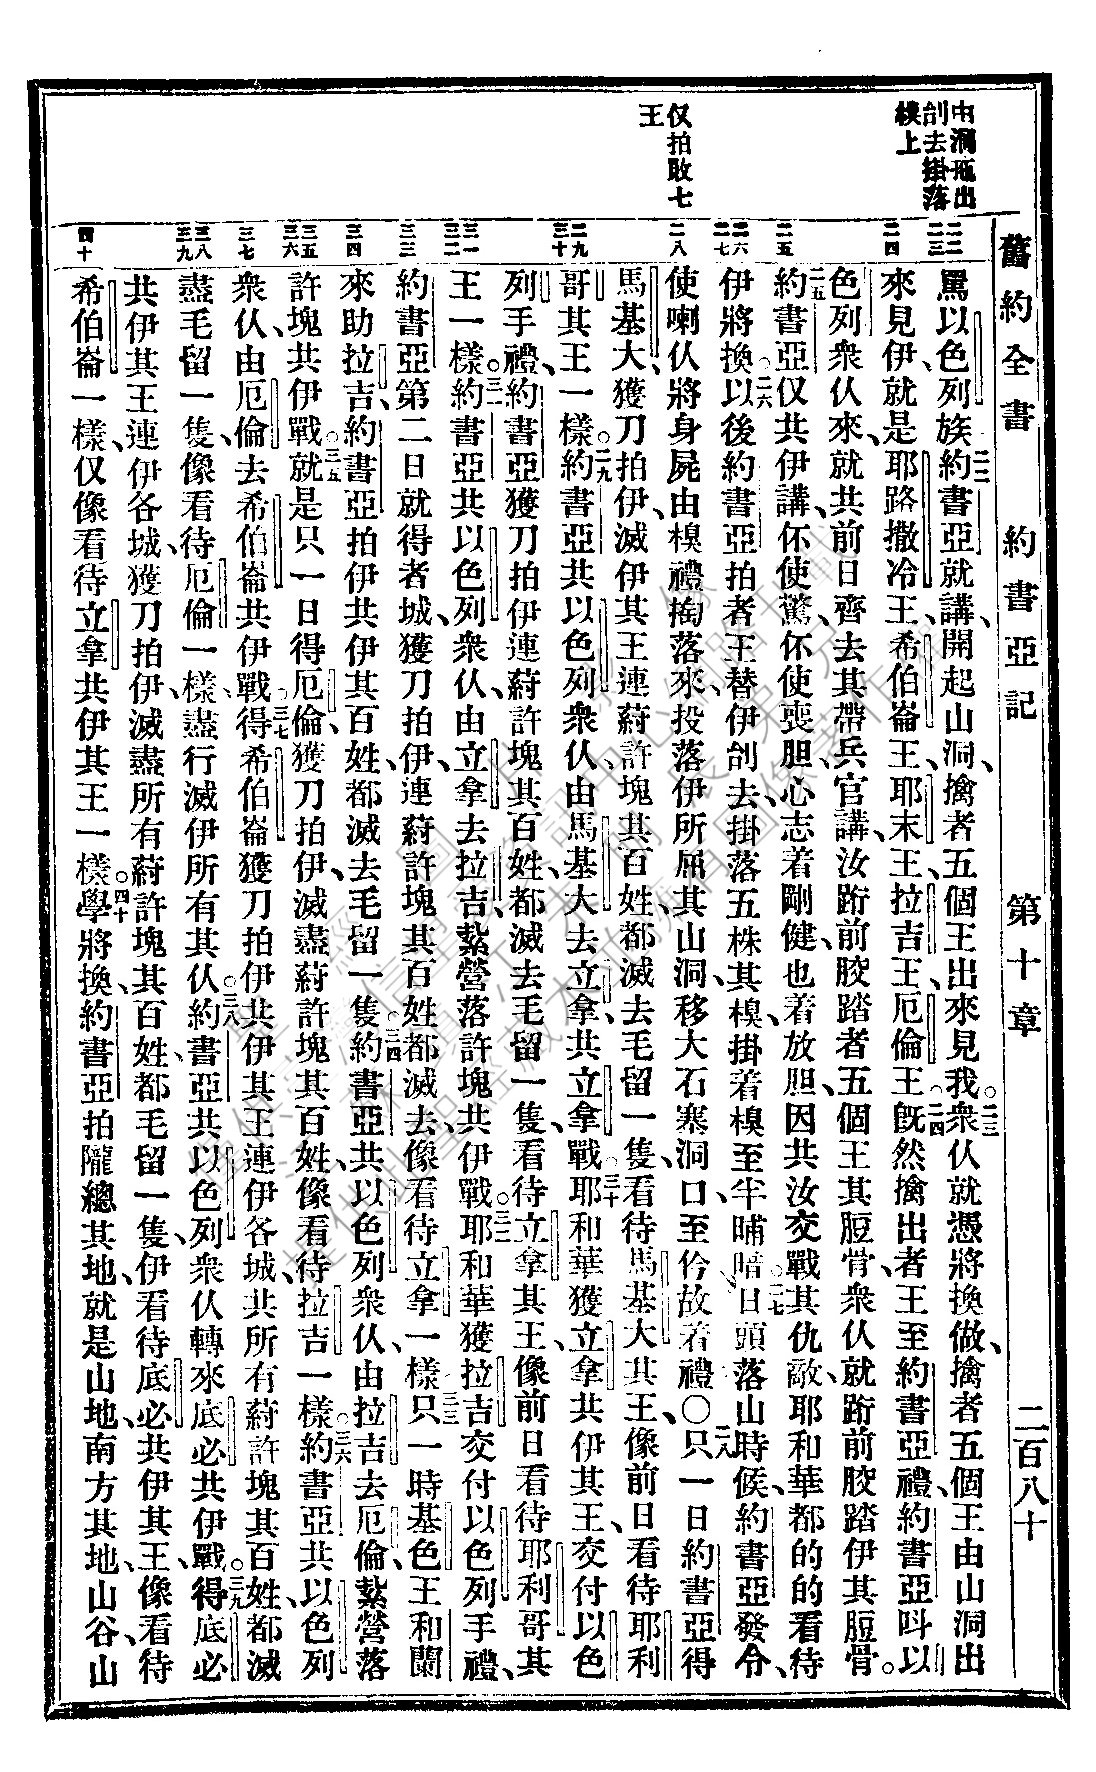 舊約全書 約書亞記 第十章 二百八十
由洞拖出
剖去掛落
模上
仅拍敗七
王
二二
二三
二四
二五
二六
二七
二八
二九
三十
三一
三二
三三
三四
三五
三六
三七
三八
三九
四十
罵以色列族、二二約書亞就講、開起山洞、擒者五個王出來見我。二三衆仈就憑將換做、擒者五個王由山洞出
來見伊就是耶路撒冷王、希伯崙王、耶末王、拉吉王、厄倫王。二四旣然擒出者王至約書亞禮、約書亞呌以
色列衆仈來、就共前日齊去其帶兵官講、汝跨前骹踏者五個王其脰骨、衆仈就跨前骹踏伊其脰骨。
二五約書亞仅共伊講、伓使驚、伓使喪胆、心志着剛健、也着放胆、因共汝交戰其仇敵、耶和華都的的看待
伊將換。二六以後約書亞拍者王、替伊剖去、掛落五株其模、掛着模至半晡暗。二七日頭落山時候、約書亞發令、
使喇仈將身屍由模禮掏落來、投落伊所屈其山洞、移大石塞洞口、至仱故着禮○二八只一日約書亞得
馬基大、獲刀拍伊、滅伊其王連蔚許塊其百姓、都滅去毛留一隻、看待馬基大其王、像前日看待耶利
哥其王一樣。二九約書亞共以色列衆仈、由馬基大去立拿、共立拿戰。三十耶和華獲立拿共伊其王、交付以色
列手禮。約書亞獲刀拍伊連蔚許塊其百姓、都滅去毛留一隻、看待立拿其王、像前日看待耶利哥其
王一樣。三一約書亞共以色列衆仈、由立拿去拉吉、紮營落許塊共伊戰。三二耶和華獲拉吉交付以色列手禮、
約書亞第二日就得者城、獲刀拍伊、連蔚許塊其百姓都滅去、像看待立拿一樣。三三只一時基色王和蘭
來助拉吉、約書亞拍伊共伊其百姓、都滅去毛留一隻。三四約書亞共以色列衆仈由拉吉去厄倫、紮營落
許塊共伊戰。三五就是只一日得厄倫、獲刀拍伊、滅盡蔚許塊其百姓、像看待拉吉一樣。三六約書亞共以色列
衆仈、由厄倫去希伯崙共伊戰。三七得希伯崙獲刀拍伊、共伊其王連伊各城、共所有蔚許塊其百姓、都滅
盡毛留一隻、像看待厄倫一樣、盡行滅伊所有其仈。三八約書亞共以色列衆仈轉來底必、共伊戰。三九得底必
共伊其王連伊各城、獲刀拍伊、滅盡所有蔚許塊其百姓、都毛留一隻、伊看待底必共伊其王、像看待
希伯崙一樣、仅像看待立拿共伊其王一樣。四十學將換、約書亞拍隴總其地、就是山地、南方其地、山谷、山